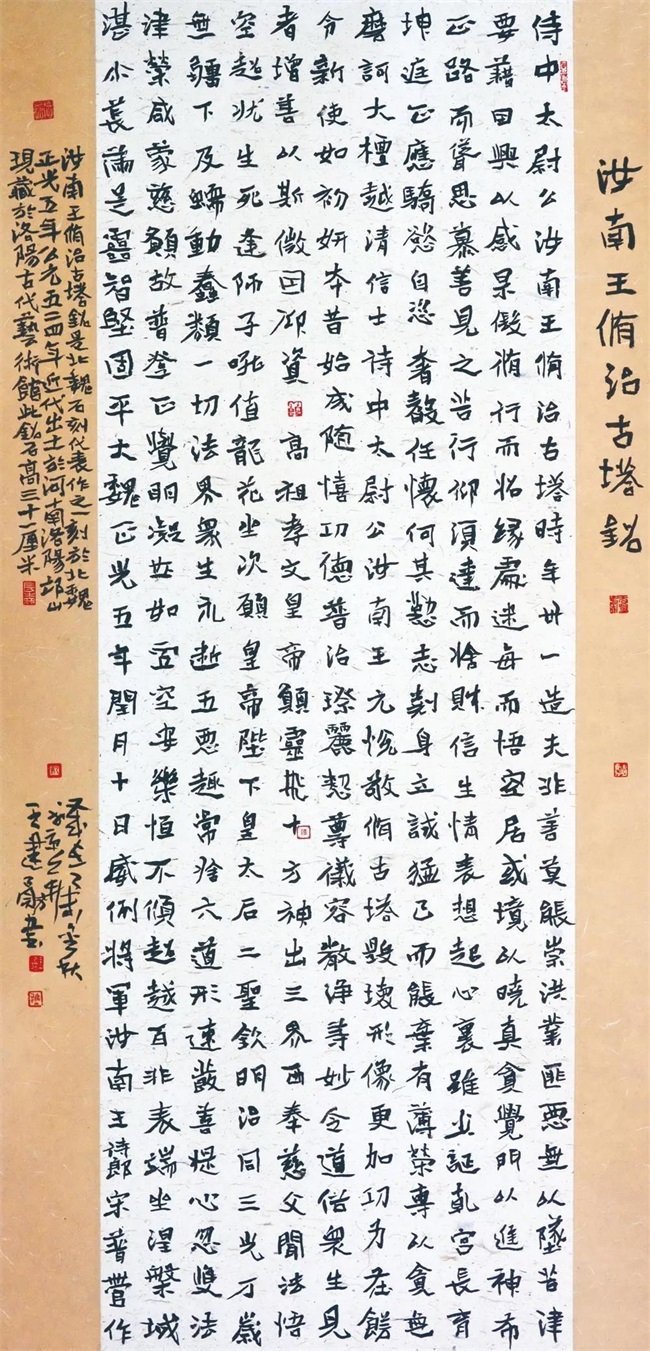 汝南王脩治古塔銘
侍中太尉公汝南王脩治古塔時年卅一造夫非善莫能崇洪業匪惡無以墜苦津
要藉因興以感果假脩行而招緣處迷每而悟空居或境以曉真貪覺門以進神希
正路而聳思慕善見之苦行仰須達而捨財信生情表想起心裏雖出誕乾宮長育
坤庭正應驕慾自恣奢聲任懷何其懃志剋身立誠猛己而能棄有薄榮專以貪無
磨訶大檀越清信士侍中太尉公汝南王元悅敬脩古塔毀壞形像更加功力庄餝
令新使如初妍本昔始成隨憘功德營治璨麗愨尊儀容嚴淨等妙令道俗衆生見
者增善以斯微因仰資高祖孝文皇帝願靈飛十方神出三界面奉慈父聞法悟
空超狀生死逢師子吼值龍花坐次願皇帝陛下皇太后二聖欽明治同三光万歲
無疆下及蠕動蠢類一切法界衆生永斷五惡趣常捨六道形速發善提心忍雙法
津榮咸蒙慈願故普登正覺明凝世如虛空安樂恒不傾超越百非表端坐涅槃城
湛尒蕩是靈智堅固平大魏正光五年閏月十日威例將軍汝南王侍郎宋普營作
汝南王脩治古塔銘是北魏石刻代表作之一刻於北魏
正光五年公元五二四年近代出土於河南洛陽邙山
現藏於洛陽古代藝術館此銘石高三十一厘米
金秋
書